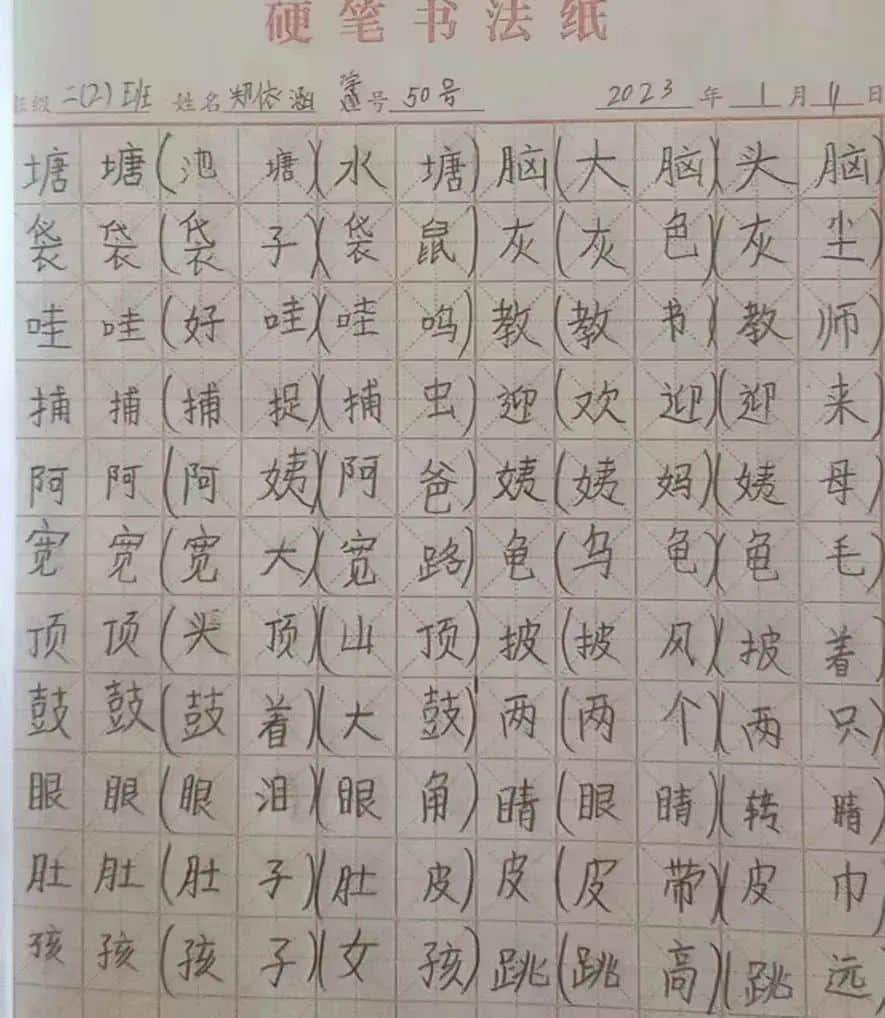 硬笔书法纸
班级 二(2)班 姓名 郑依涵 学号 50号 2023 年 1 月 11 日
塘 塘 (池 塘)(水 塘) 脑 (大 脑)(头 脑)
袋 袋 (袋 子)(袋 鼠) 灰 (灰 色)(灰 尘)
哇 哇 (好 哇)(哇 鸣) 教 (教 书)(教 师)
捕 捕 (捕 捉)(捕 虫) 迎 (欢 迎)(迎 来)
阿 阿 (阿 姨)(阿 爸) 姨 (姨 妈)(姨 母)
宽 宽 (宽 大)(宽 路) 龟 (乌 龟)(龟 毛)
顶 顶 (头 顶)(山 顶) 披 (披 风)(披 着)
鼓 鼓 (鼓 着)(大 鼓) 两 (两 个)(两 只)
眼 眼 (眼 泪)(眼 角) 睛 (眼 睛)(转 睛)
肚 肚 (肚 子)(肚 皮) 皮 (皮 带)(皮 巾)
孩 孩 (孩 子)(女 孩) 跳 (跳 高)(跳 远)